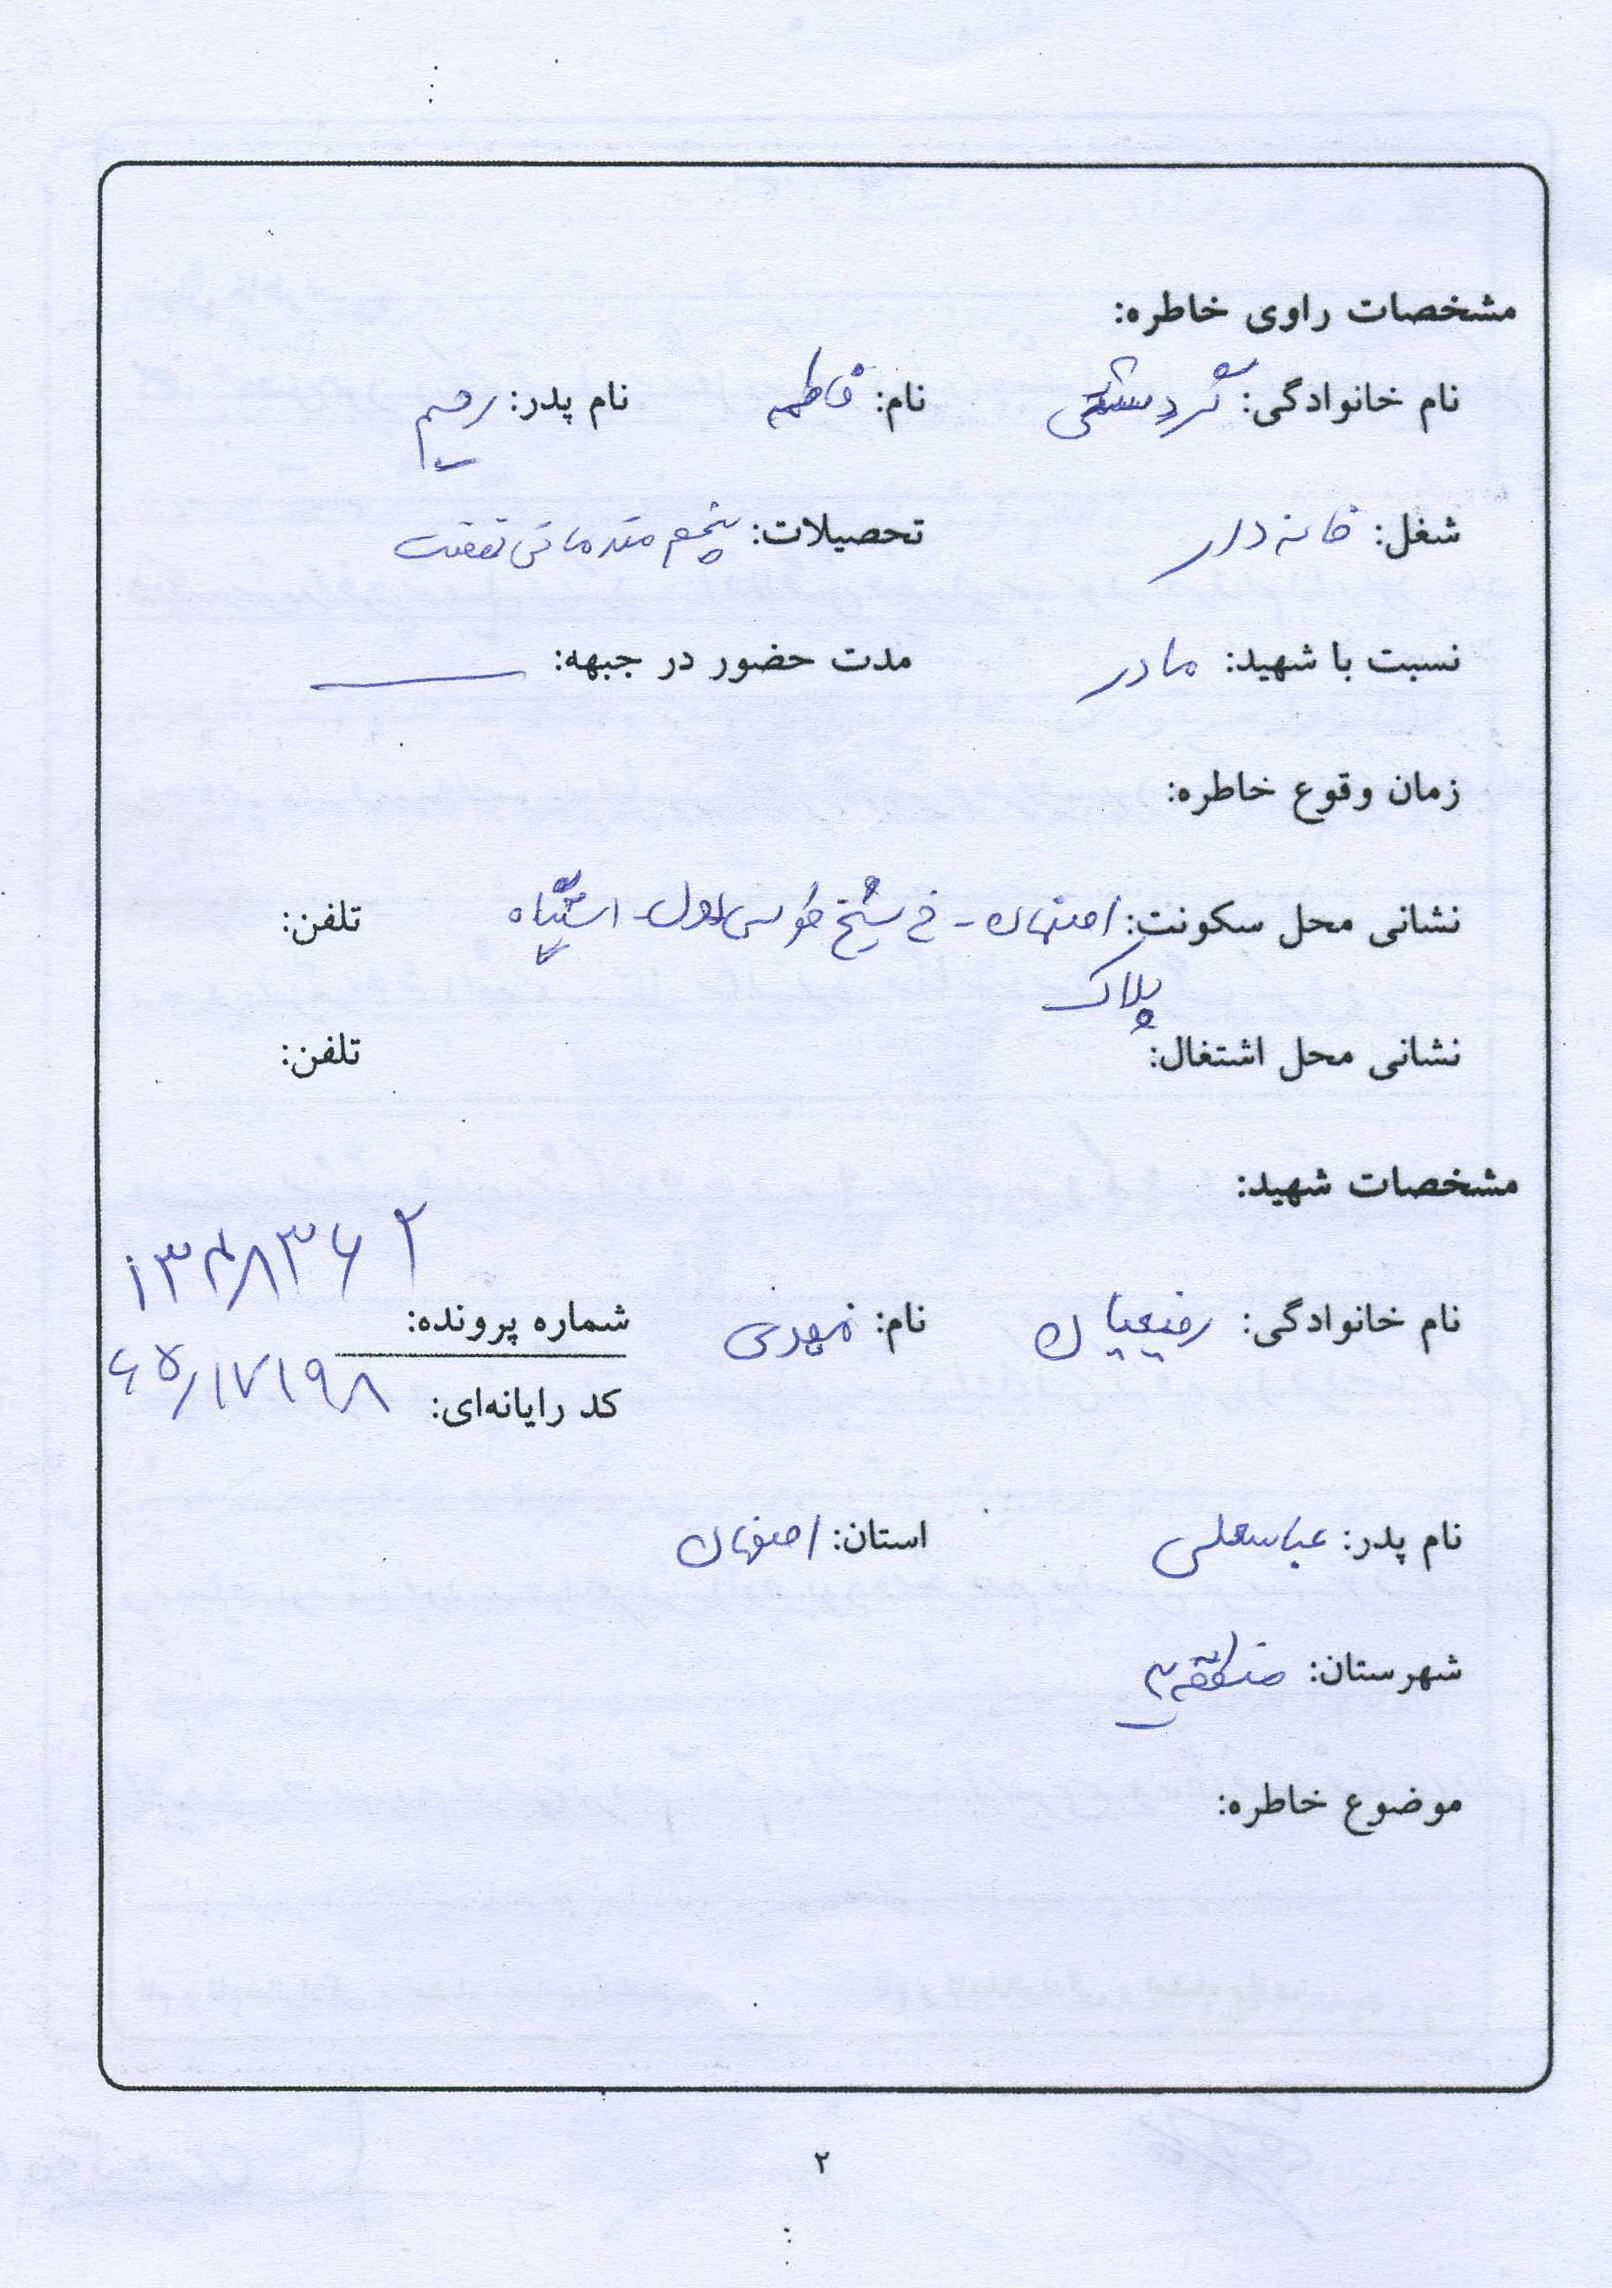 مشخصات راوی خاطره:
نام خانوادگی: گردشتی نام: فاطمه نام پدر: رحیم
شغل: خانه دار تحصیلات: پنجم متدماتی نهضت
نسبت با شهید: مادر مدت حضور در جبهه: ــــ
زمان وقوع خاطره:
نشانی محل سکونت: اصفهان - خ شیخ طوسی اول - تلفن:
پلاک
نشانی محل اشتغال: تلفن:
مشخصات شهید:
نام خانوادگی: رفیعیان نام: مهدی شماره پرونده: ۱۳۴۸۳۶۲
کد رایانه‌ای: ۶۵/۱۷۱۹۸
نام پدر: عباسعلی استان: اصفهان
شهرستان: منطقه ۲
موضوع خاطره:
۲